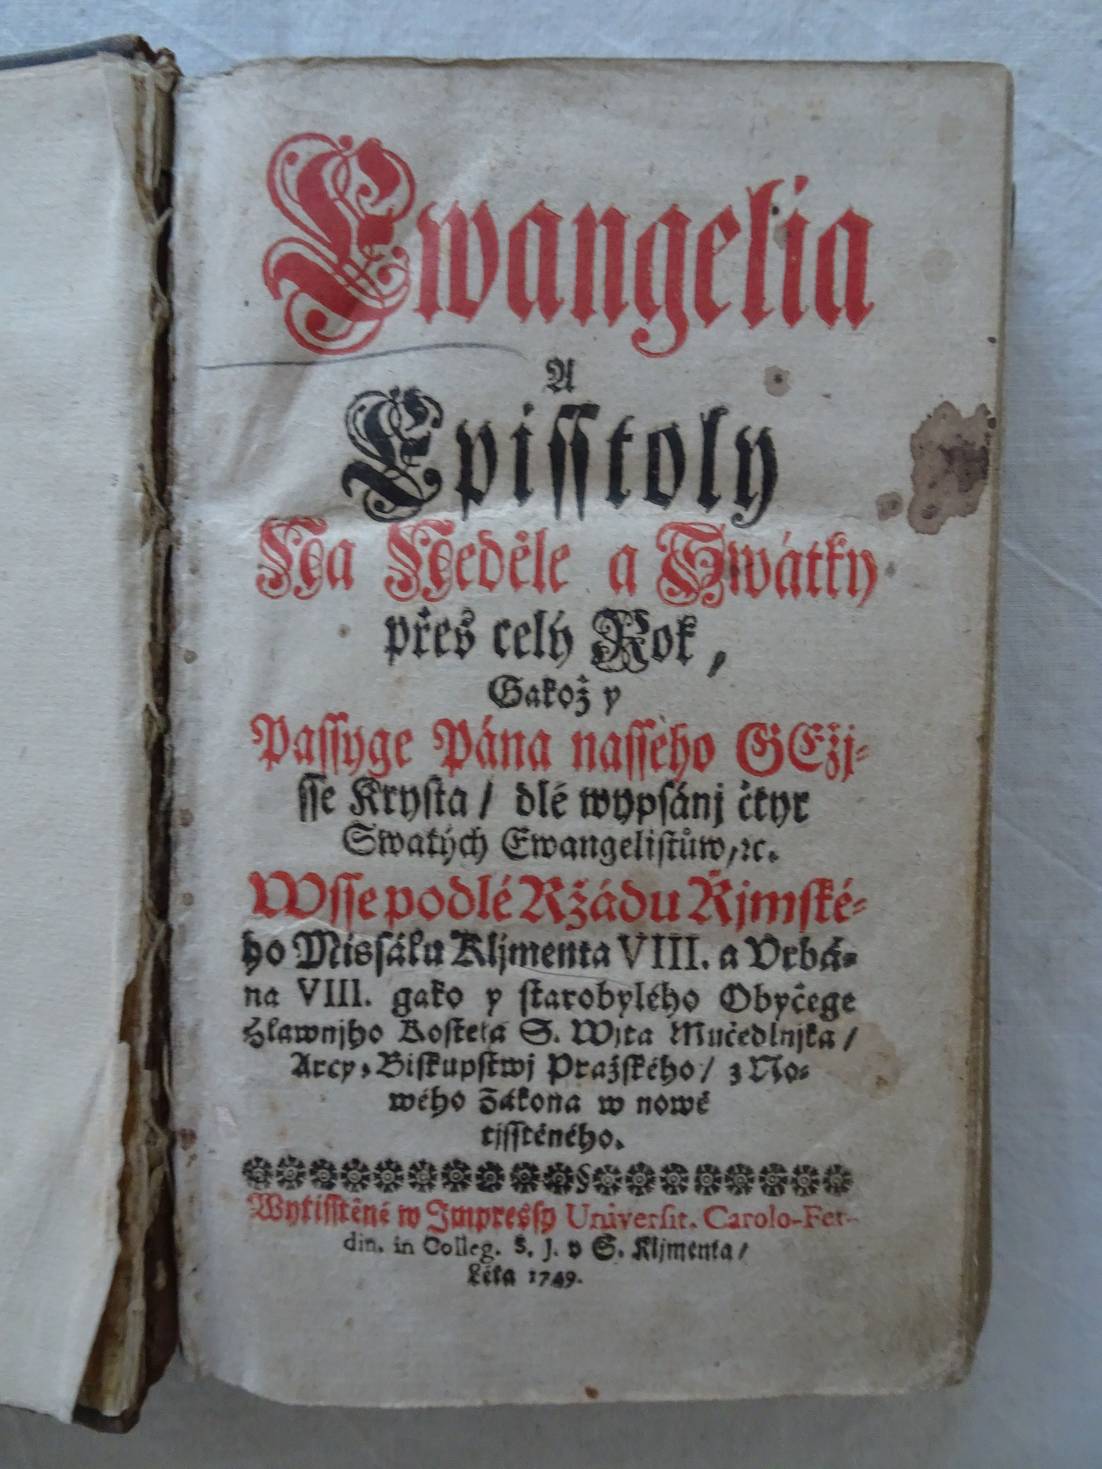 Ewangelia
A
Episstoly
Na Neděle a Swátky
přes celý Rok,
Gakož y
Passyge Pána nasseho GEžj-
sse Krysta / dlé wypsánj čtyr
Swatých Ewangelistůw, ꝛc.
Wsse podlé Ržádu Ržjmské-
ho Missálu Kljmenta VIII. a Vrbá-
na VIII. gako y starobylého Obyčege
Hlawnjho Kostela S. Wjta Mučedlnjka /
Arcy-Biskupstwj Pražského / z No-
wého Zákona w nowě
tjsstěného.
Wytisstěné w Impressy Universit. Carolo-Fer-
din. in Colleg. S. J. v S. Kljmenta /
Léta 1749.